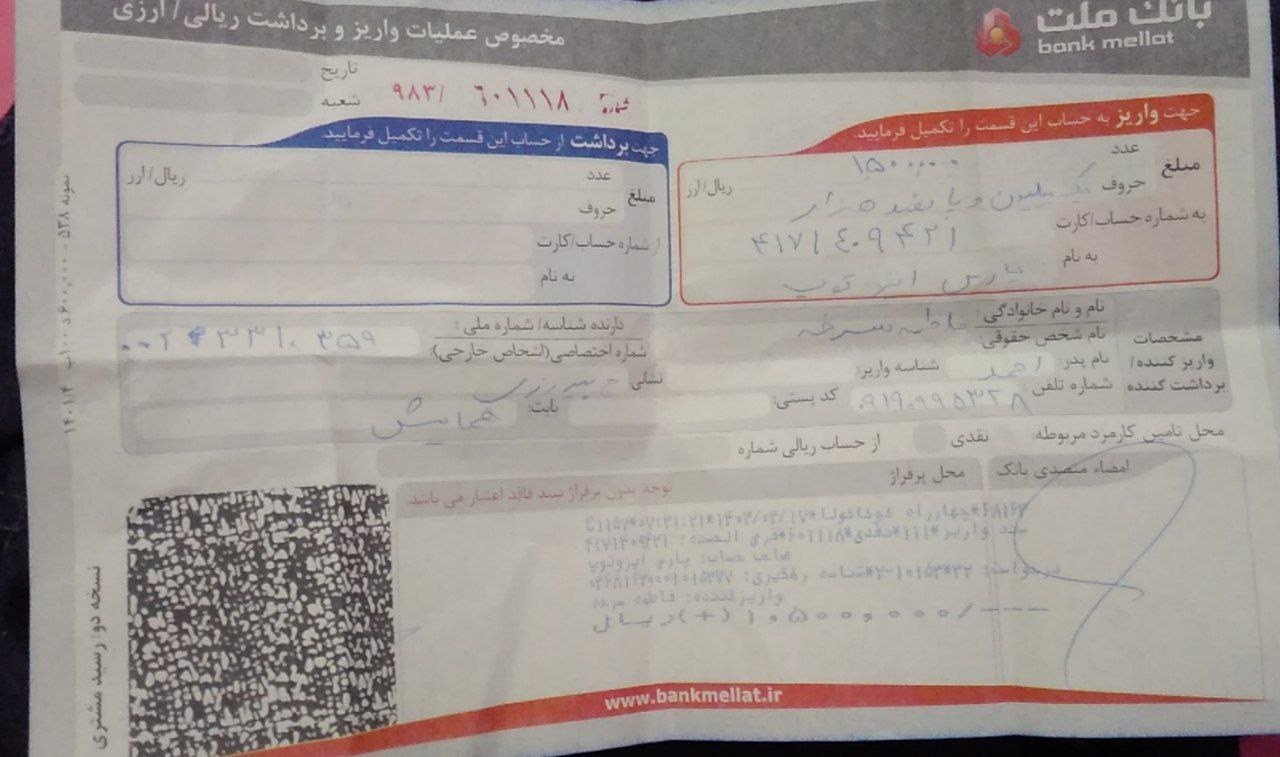 بانک ملت
bank mellat
مخصوص عملیات واریز و برداشت ریالی/ارزی
تاریخ
شعبه
شماره ۶۰۱۱۱۸ /۹۸۳
جهت واریز به حساب این قسمت را تکمیل فرمایید.
مبلغ
عدد ۱,۵۰۰,۰۰۰
حروف یک میلیون و پانصد هزار
ریال/ارز
به شماره حساب/کارت ۴۱۷۱۴۰۹۴۲۱
به نام پارس ایزوتوپ
جهت برداشت از حساب این قسمت را تکمیل فرمایید.
مبلغ
عدد
حروف
ریال/ارز
از شماره حساب/کارت
به نام
مشخصات واریز کننده/ برداشت کننده
نام و نام خانوادگی
نام شخص حقوقی: فاطمه سرخه
دارنده شناسه/ شماره ملی:
شماره اختصاصی(اشخاص خارجی):
نام پدر: احمد
شناسه واریز:
نشانی پیروزی
شماره تلفن: ۰۹۱۹۰۹۹۵۳۲۸
کد پستی:
بابت: همایش
محل تامین کارمزد مربوطه: نقدی از حساب ریالی شماره
امضاء متصدی بانک
محل پرفراژ
توجه: بدون پرفراژ سند فاقد اعتبار می باشد
۶۸۱۶۲*چهارراه کوکاکولا*۱۴۰۳/۰۳/۱۷*۰۷:۳۱:۲۱*C۱۱۵۷
سند واریز*۱۱۱*نقدی*۶۰۱۱۱۸*قرض الحسنه: ۴۱۷۱۴۰۹۴۲۱
صاحب حساب: پارس ایزوتوپ
واریزکننده: فاطمه سرخه
---/۱,۵۰۰,۰۰۰(+)ریال
www.bankmellat.ir
نسخه دو: رسید مشتری